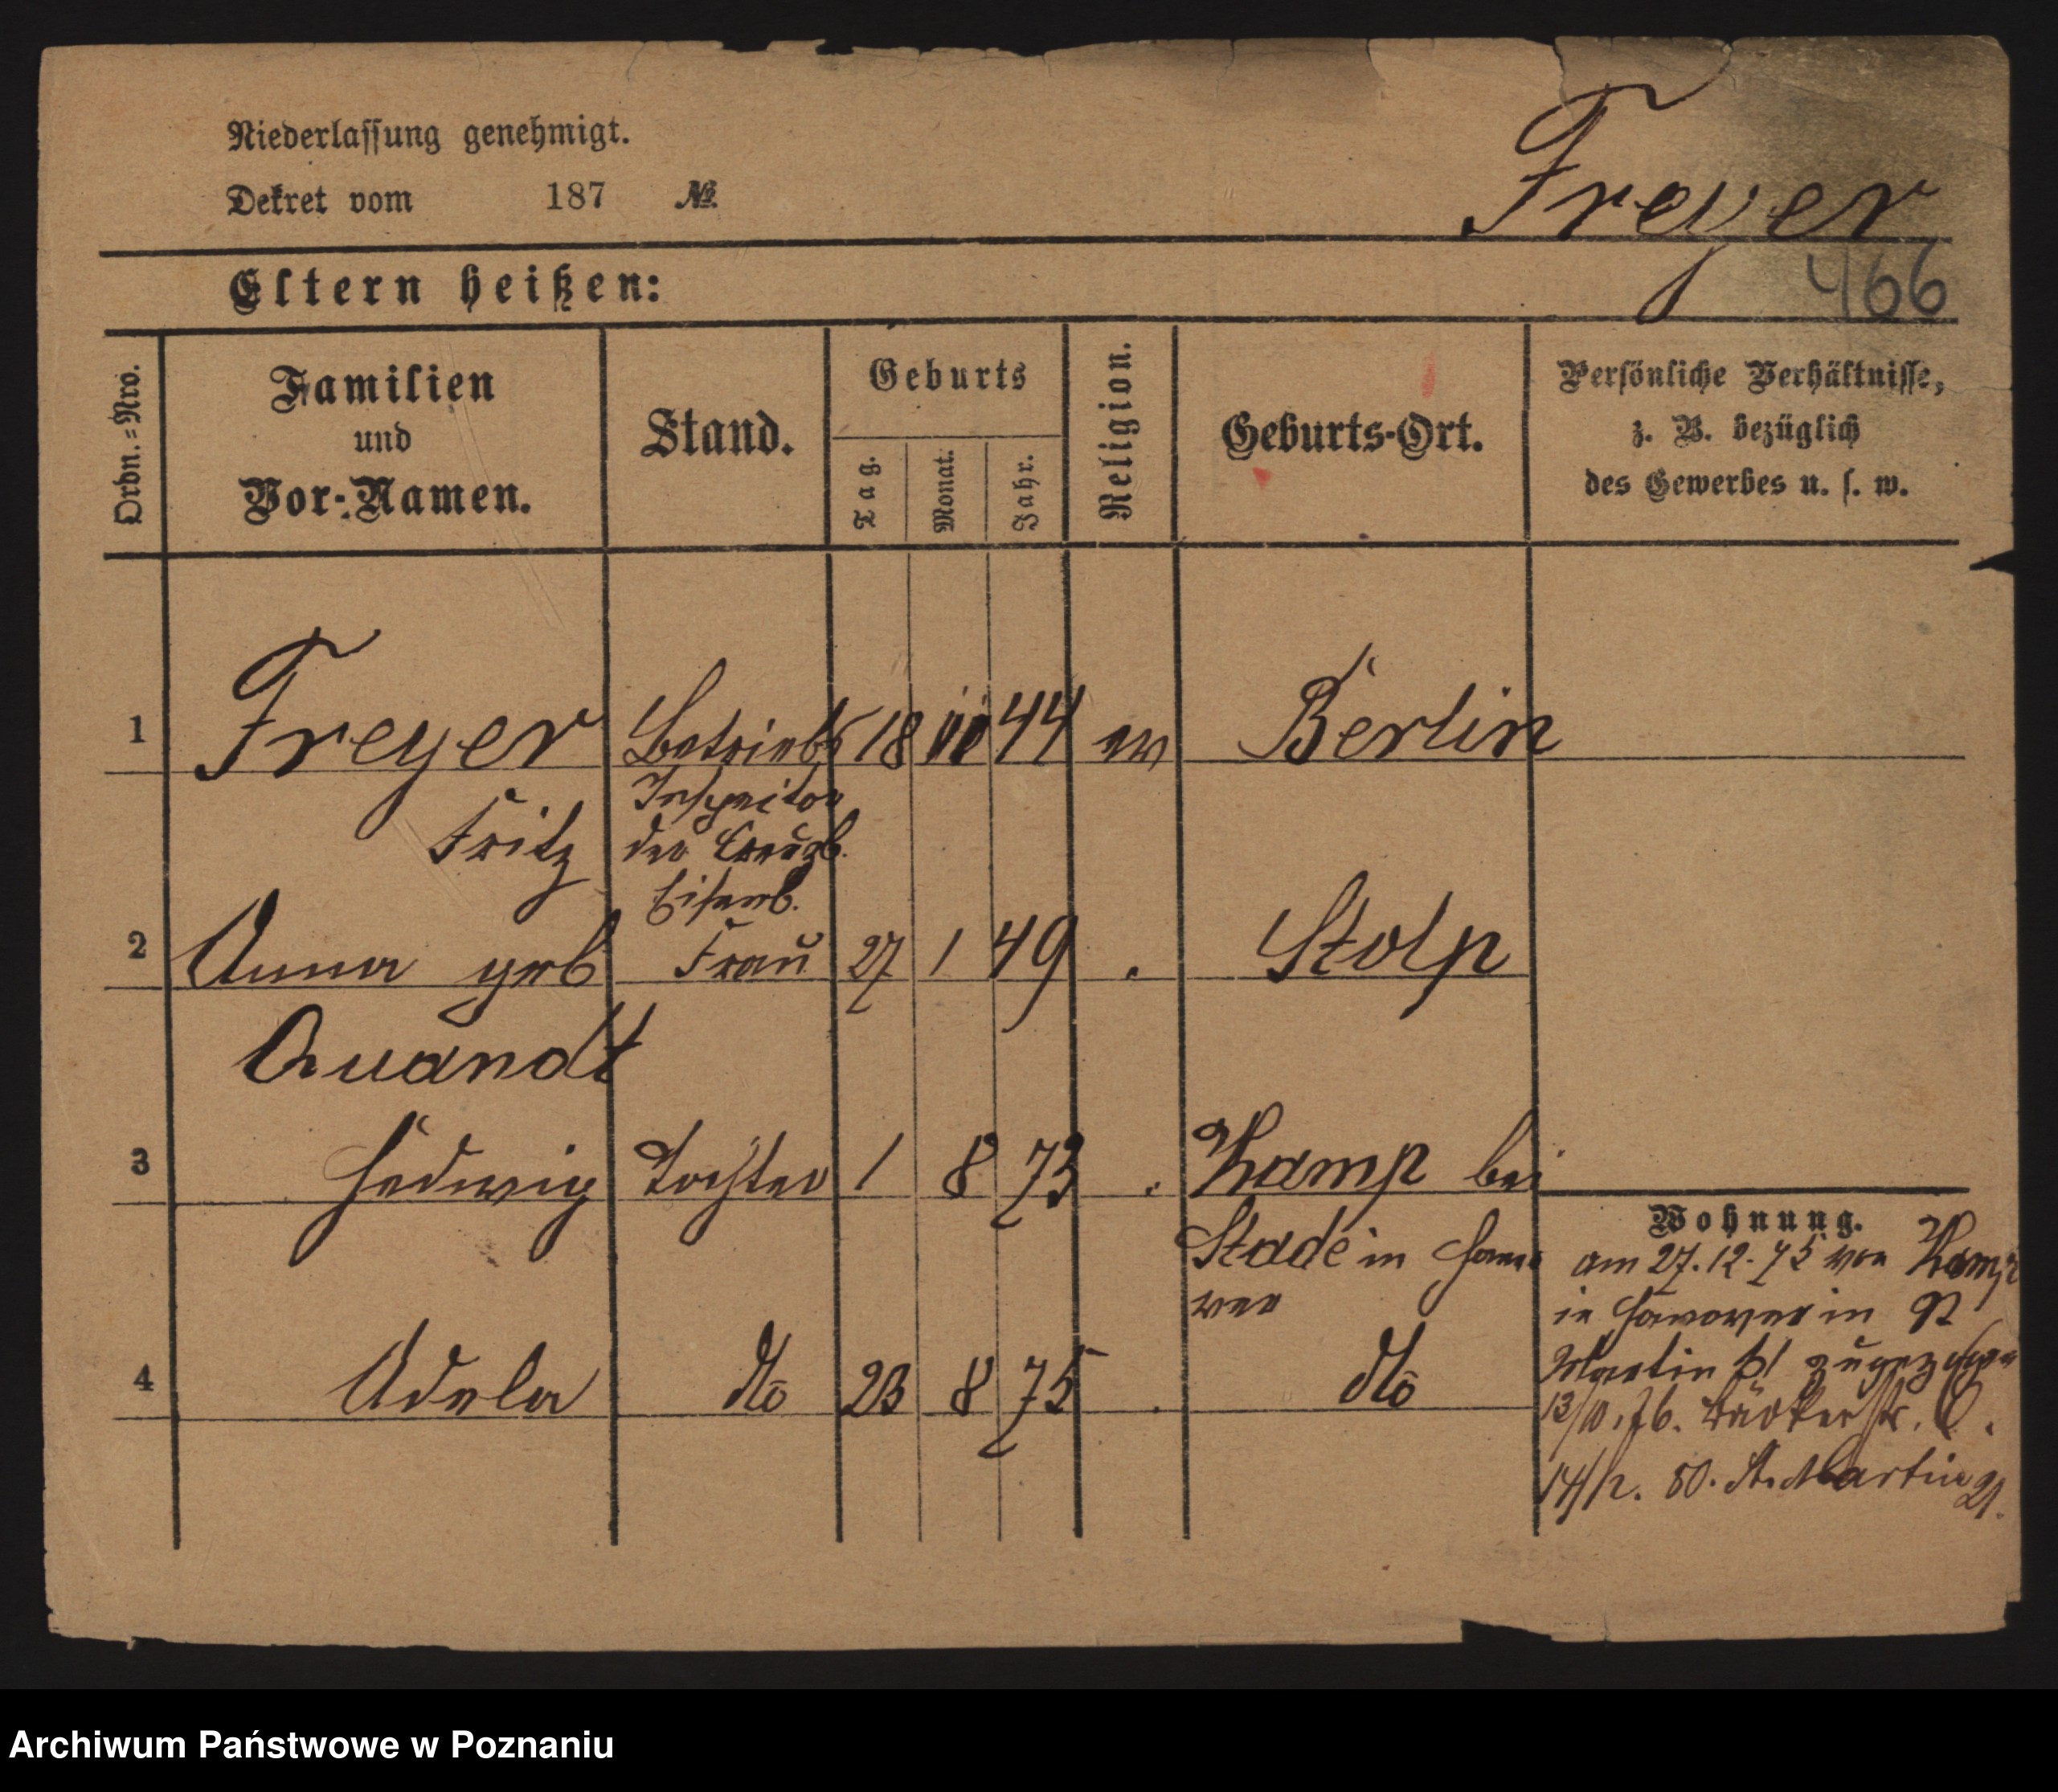 Niederlassung genehmigt.
Dekret vom 187 №
Freyer
Eltern heißen:
466
Ordn.=Nro.
Familien
und
Vor-Namen.
Stand.
Geburts
Tag.
Monat.
Jahr.
Religion.
Geburts-Ort.
Persönliche Verhältnisse,
z. B. bezüglich
des Gewerbes u. s. w.
1 Freyer Betriebs 18 44 ev Berlin
Fritz
Inspector
der Creuzb.
Eisenb.
2 Anna geb Frau 27 1 49 Stolp
Quandt
3 Hedwig Tochter 1 8 73 . Kamp bei
Stade in Hanno
ver
4 Adela dto 23 8 75 . dto
Wohnung.
am 27.12.75 von Kamp
in Hanover in St
Martin 51 zugezogen
13/10.76. Bäckerstr.
14/12. 80. St. Martin 21.
Archiwum Państwowe w Poznaniu